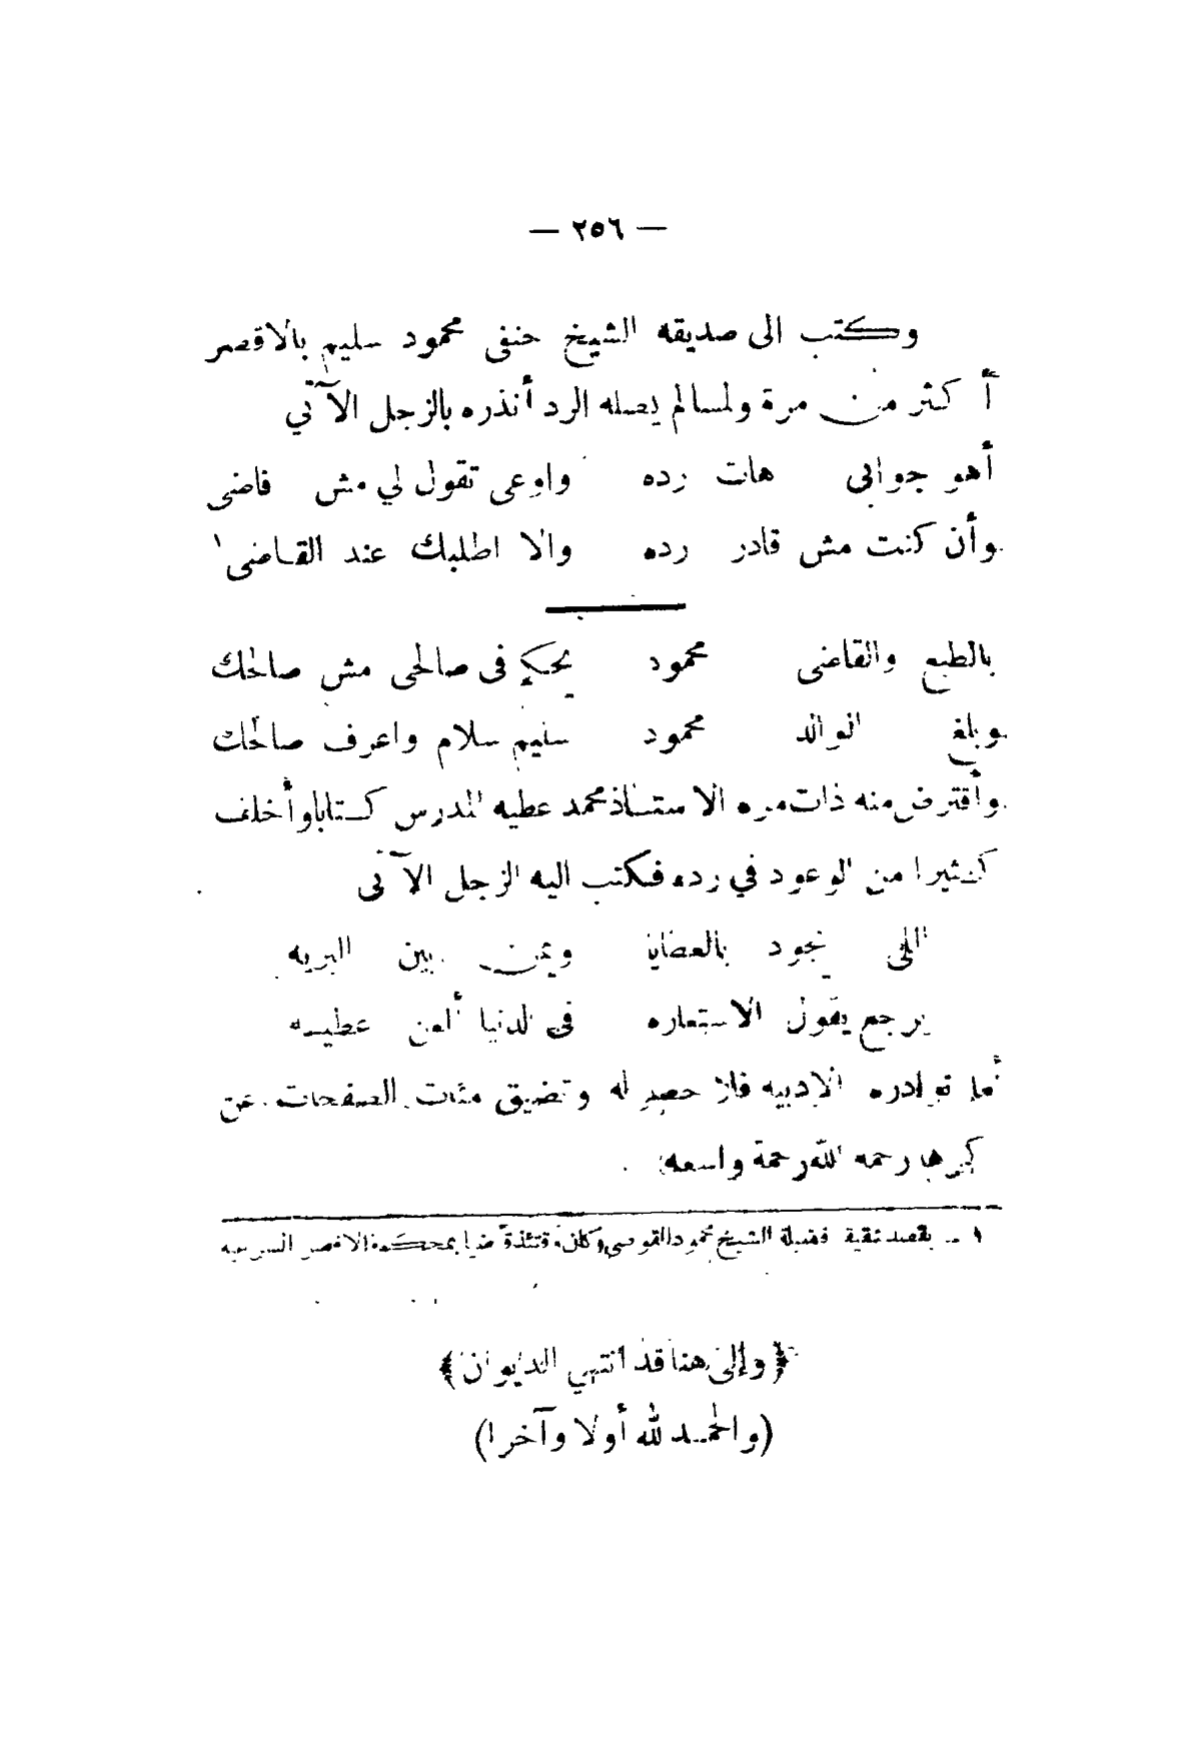 — ٢٥٦ —
وكتب الى صديقه الشيخ حنفى محمود سليم بالاقصر
أكثر من مرة ولما لم يصله الرد أنذره بالزجل الآتي
أهو جوابى هات رده واوعى تقول لي مش فاضى
وأن كنت مش قادر رده والا اطلبك عند القاضى ١
بالطبع والقاضى محمود يحكم فى صالحى مش صالحك
وبلغ الوالد محمود سليم سلام واعرف صالحك
وأقترض منه ذات مره الاستاذ محمد عطيه المدرس كتابا وأخلف
كثيرا من الوعود في رده فكتب اليه الزجل الآتى
اللى يجود بالعطايا ويمن بين البريه
يرجع يقول الاستعاره فى الدنيا ألعن عطيه
أما نوادره الادبيه فلا حصر له وتضيق مئات الصفحات عن
رحمه الله رحمة واسعه
١ – يقصد فضيلة الشيخ محمود القوصى وكان وقتئذ قاضيا بمحكمة الاقصر الشرعيه
﴿وإلى هنا قد انتهي الديوان﴾
(والحمد لله أولا وآخرا)